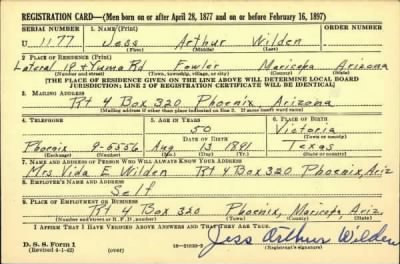 REGISTRATION CARD—(Men born on or after April 28, 1877 and on or before February 16, 1897)
SERIAL NUMBER 1. NAME (Print) ORDER NUMBER
U 1177 Jess Arthur Wilden
(First) (Middle) (Last)
2. PLACE OF RESIDENCE (Print)
Lateral 19 & Yuma Rd Fowler Maricopa Arizona
(Number and street) (Town, township, village, or city) (County) (State)
[THE PLACE OF RESIDENCE GIVEN ON THE LINE ABOVE WILL DETERMINE LOCAL BOARD
JURISDICTION; LINE 2 OF REGISTRATION CERTIFICATE WILL BE IDENTICAL]
3. MAILING ADDRESS
Rt 4 Box 320 Phoenix, Arizona
[Mailing address if other than place indicated on line 2. If same insert word same]
4. TELEPHONE 5. AGE IN YEARS 6. PLACE OF BIRTH
50 Victoria
DATE OF BIRTH (Town or county)
Phoenix 9-5556 Aug 13 1891 Texas
(Exchange) (Number) (Mo.) (Day) (Yr.) (State or country)
7. NAME AND ADDRESS OF PERSON WHO WILL ALWAYS KNOW YOUR ADDRESS
Mrs. Vida E. Wilden Rt 4 Box 320 Phoenix, Ariz
8. EMPLOYER'S NAME AND ADDRESS
Self
9. PLACE OF EMPLOYMENT OR BUSINESS
Rt 4 Box 320 Phoenix, Maricopa, Ariz.
(Number and street or R. F. D. number) (Town) (County) (State)
I AFFIRM THAT I HAVE VERIFIED ABOVE ANSWERS AND THAT THEY ARE TRUE.
Jess Arthur Wilden
D. S. S. Form 1 (Registrant's signature)
(Revised 4-1-42) (over)